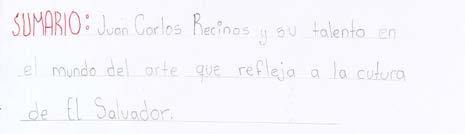 SUMARIO: Juan Carlos Recinos y su talento en
el mundo del arte que refleja a la cutura
de El Salvador.